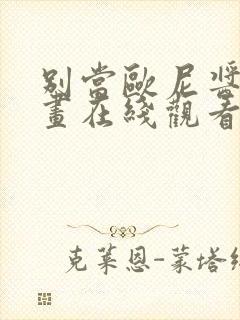 別當歐尼醬
畫在綫觀看
克萊恩-蒙塔